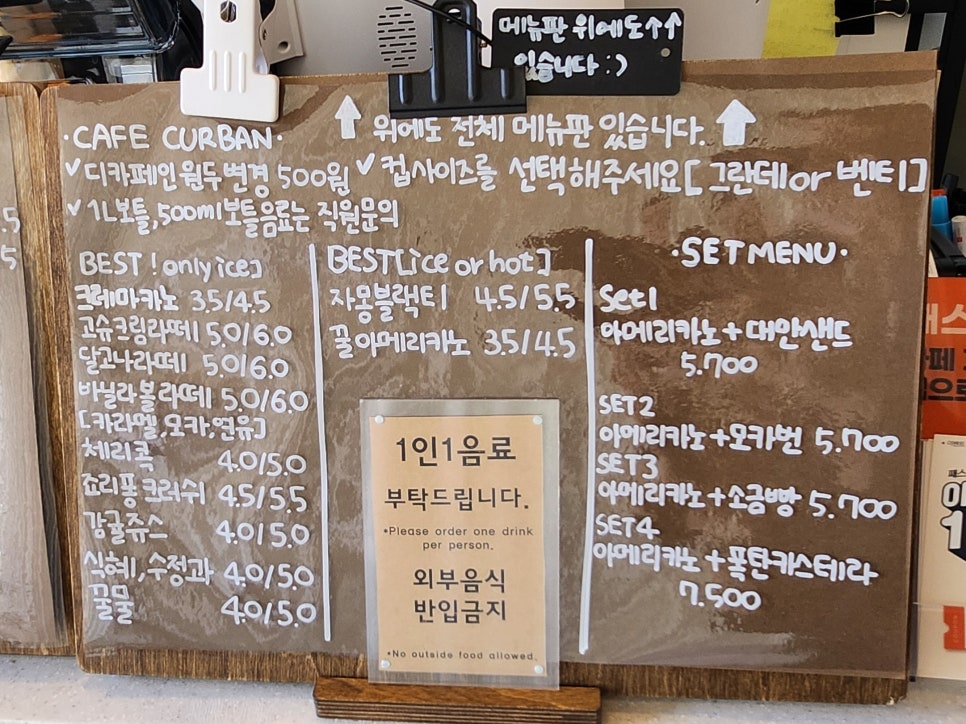 메뉴판 위에도↑↑
있습니다 :)
·CAFE CURBAN·
↑ 위에도 전체 메뉴판 있습니다. ↑
✓디카페인 원두 변경 500원 ✓컵사이즈를 선택해주세요[그란데 or 벤티]
✓1L보틀, 500ml보틀음료는 직원문의
BEST[only ice]
크레마카노 3.5/4.5
고슈크림라떼 5.0/6.0
달고나라떼 5.0/6.0
바닐라볼라떼 5.0/6.0
[카라멜,모카,연유]
체리콕 4.0/5.0
쵸리퐁크러쉬 4.5/5.5
감귤쥬스 4.0/5.0
식혜,수정과 4.0/5.0
꿀물 4.0/5.0
BEST[ice or hot]
자몽블랙티 4.5/5.5
꿀아메리카노 3.5/4.5
·SET MENU·
Set1
아메리카노+대안샌드
5.700
SET2
아메리카노+모카번 5.700
SET3
아메리카노+소금빵 5.700
SET4
아메리카노+폭탄카스테라
7.500
1인1음료
부탁드립니다.
*Please order one drink
per person.
외부음식
반입금지
*No outside food allowed.